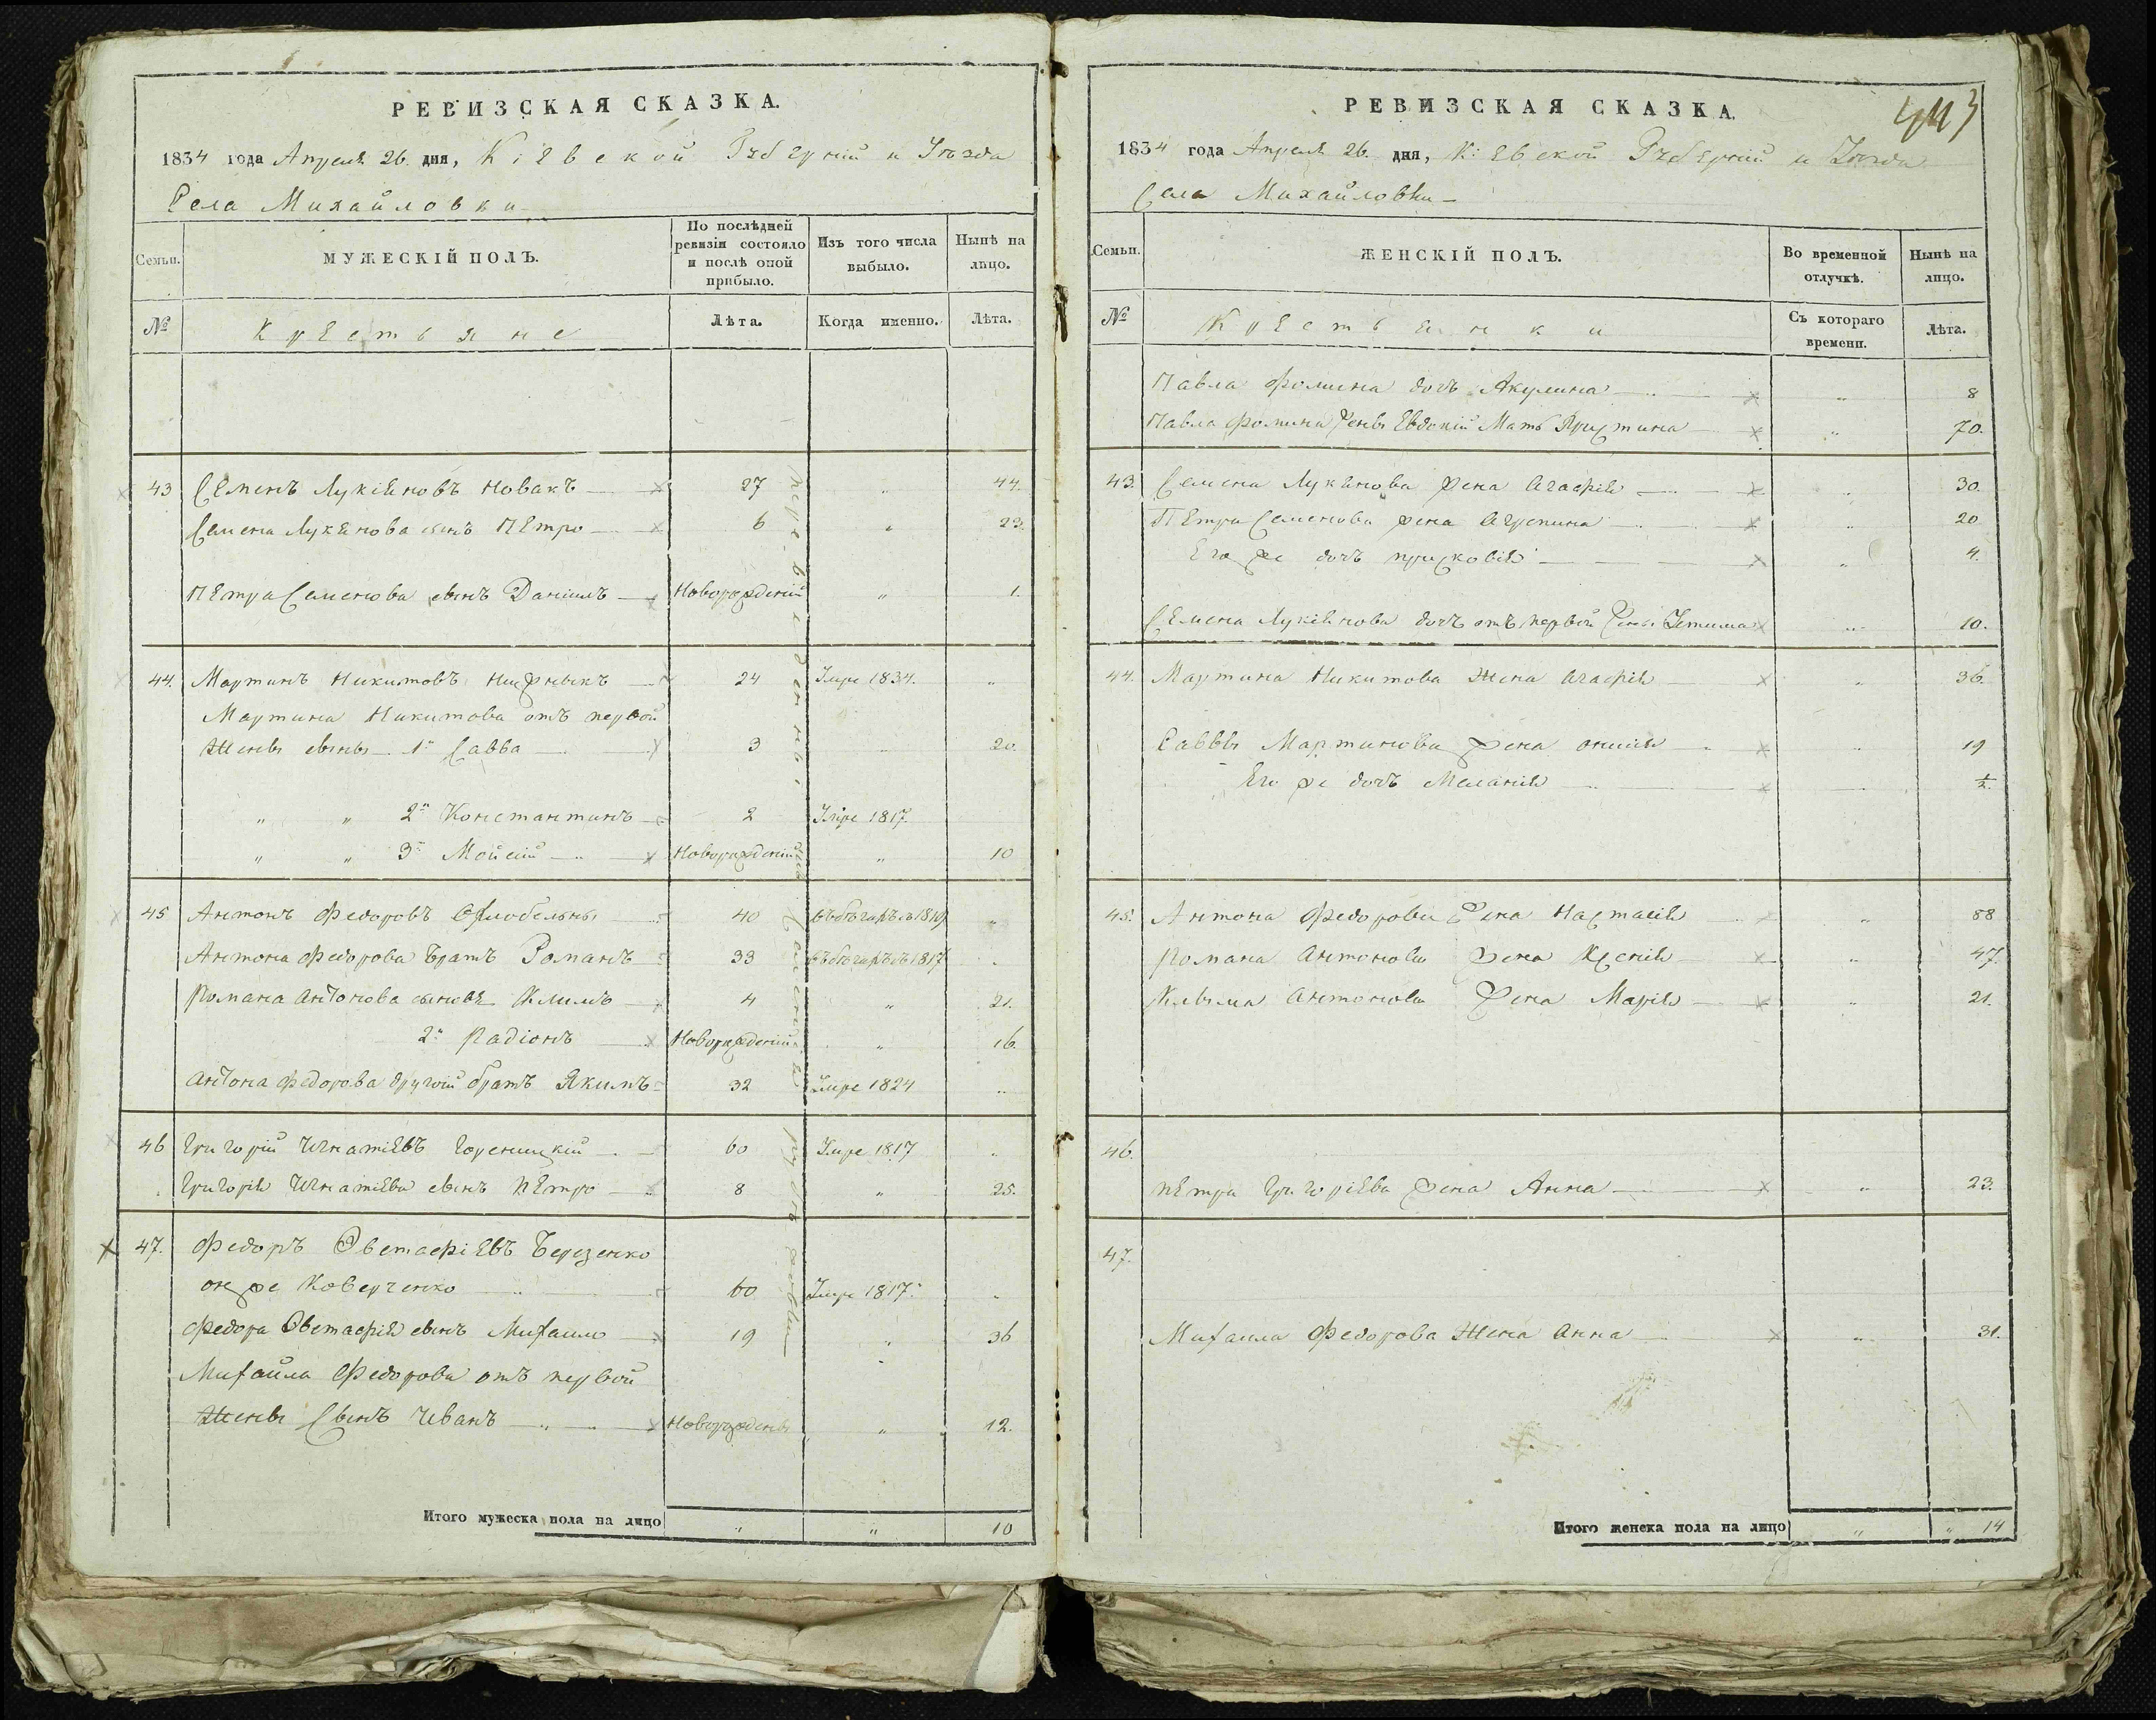 РЕВИЗСКАЯ СКАЗКА.
1834 года Апреля 26. дня, Кіевской Губерніи и Уѣзда
Села Михайловки
Семьи.
МУЖЕСКІЙ ПОЛЪ.
По послѣдней ревизіи состояло и послѣ оной прибыло.
Изъ того числа выбыло.
Нынѣ на лицо.
№
Крестьяне
Лѣта.
Когда именно.
Лѣта.
43 Семенъ Лукіяновъ Новакъ 27 " 44.
Семена Лукянова сынъ Петро 6 " 23.
Петра Семенова сынъ Даніилъ Новорожденій " 1.
44. Мартинъ Никитовъ 24 Умре 1834. "
Мартина Никитова отъ первой
Жены сыны 1й Савва 3 " 20.
" " 2й Константинъ 2 Умре 1817.
" " 3й Мойсій Новорожденій " 10
45 Антонъ Федоровъ 40 1819 "
Антона Федорова братъ Романъ 33 1817 "
Романа Антонова сыновя Климъ 4 " 21.
2й Радіонъ Новорожденій " 16.
Антона Федорова другій братъ Якимъ 32 Умре 1824 "
46 Григорій Игнатіевъ Гореницкій 60 Умре 1817 "
Григорія Игнатіева сынъ Петро 8 " 25.
47. Федоръ Євстафіевъ Березенко
онже Коверченко 60 Умре 1817. "
Федора Євстафія сынъ Михаило 19 " 36
Михаила Федорова отъ первой
Жены Сынъ Иванъ Новорожденъ " 12.
Итого мужеска пола на лицо " " 10
РЕВИЗСКАЯ СКАЗКА.
1834 года Апреля 26. дня, Кіевской Губерніи и Уѣзда
Села Михайловки
Семьи.
ЖЕНСКІЙ ПОЛЪ.
Во временной отлучкѣ.
Нынѣ на лицо.
№
Крестьянки
Съ котораго времени.
Лѣта.
Павла Фомина дочь Акулина " 8
Павла Фомина жены Евдокіи Мать Христина " 70.
43. Семена Лукянова жена Агафія " 30.
Петра Семенова жена Агрепина " 20
Его же дочь прасковія " 4.
Семена Лукіянова дочь отъ первой жены " 10.
44. Мартина Никитова Жена Агафія " 36.
Саввы Мартинова жена онисія " 19
Его же дочь Меланія 1/2.
45. Антона Федорова жена Настасія " 58
Романа Антонова жена Ксенія " 47.
Клыма Антонова жена Марія " 21.
46.
Петра Григоріева жена Анна " 23.
47.
Михаила Федорова Жена Анна " 31.
Итого женска пола на лицо " " 14